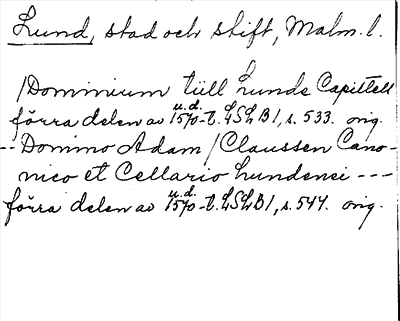 Lund, stad och stift, Malm. l.
/Dominium tüll Lunde Capittell
förra delen av u.d. 1570-t. LSLB1, s. 533. orig.
-- Domino Adam / Claussen Cano-
nico et Cellario Lundensi ---
förra delen av u.d. 1570-t. LSLB1, s. 547. orig.